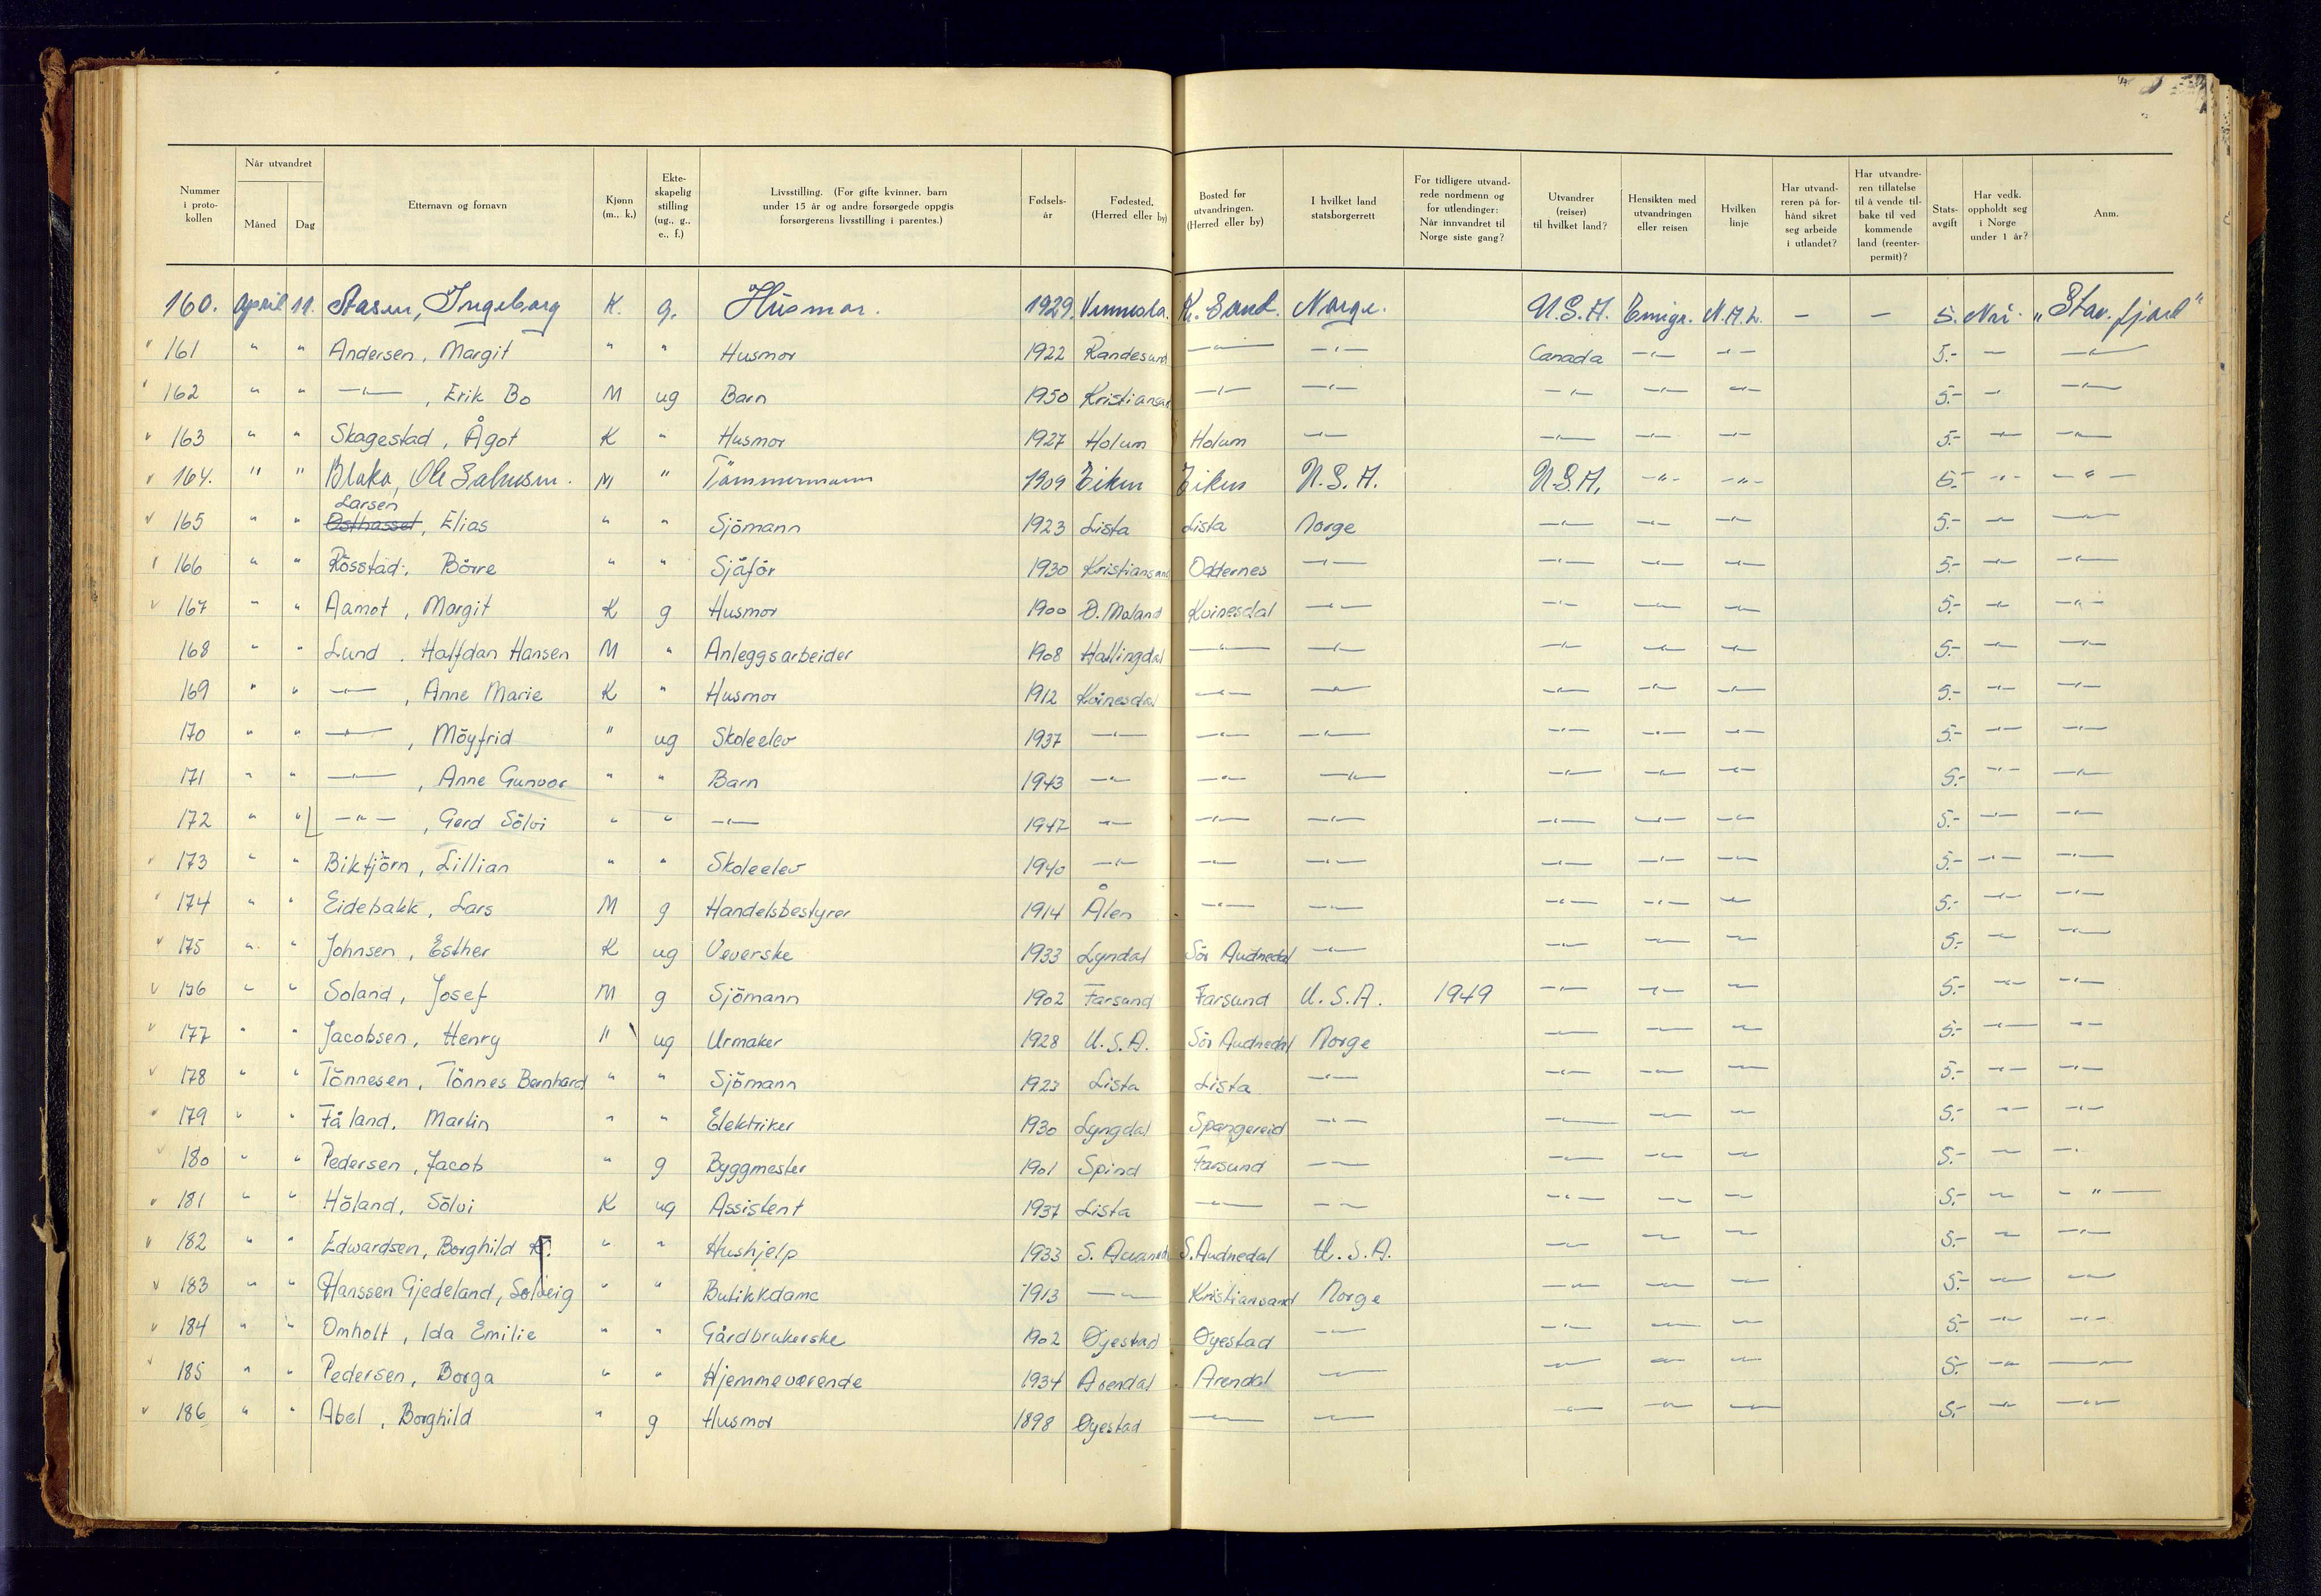 Nummer i protokollen | Når utvandret Måned | Dag | Etternavn og fornavn | Kjønn (m., k.) | Ekteskapelig stilling (ug., g., e., f.) | Livsstilling. (For gifte kvinner, barn under 15 år og andre forsørgede oppgis forsørgerens livsstilling i parentes.) | Fødselsår | Fødested. (Herred eller by) | Bosted før utvandringen. (Herred eller by) | I hvilket land statsborgerrett | For tidligere utvandrede nordmenn og for utlendinger: Når innvandret til Norge siste gang? | Utvandrer (reiser) til hvilket land? | Hensikten med utvandringen eller reisen | Hvilken linje | Har utvandreren på forhånd sikret seg arbeide i utlandet? | Har utvandreren tillatelse til å vende tilbake til vedkommende land (reenterpermit)? | Statsavgift | Har vedk. oppholdt seg i Norge under 1 år? | Anm.
160. April 11. Aasen, Ingeborg K. g. Husmor. 1929. Vennesla. Kr. Sand. Norge. U.S.A. Emigr. N.A.L. — — 5. Nei. "Stav. fjord"
161 " " Andersen, Margit " " Husmor 1922 Randesund —"— —"— Canada —"— —"— 5.- —"— —"—
162 " " —"—, Erik Bo M ug Barn 1950 Kristiansand —"— —"— —"— —"— —"— 5.- —"— —"—
163 " " Skagestad, Ågot K " Husmor 1927 Holum Holum —"— —"— —"— —"— 5.- —"— —"—
164. " " Ole M " Tömmermann 1909 Eiken Eiken U.S.A. U.S.A. —"— —"— 5.- —"— —"—
Larsen
165 " " Östhasset, Elias " " Sjömann 1923 Lista Lista Norge —"— —"— —"— 5.- —"— —"—
166 " " Rösstad, Börre " " Sjåför 1930 Kristiansand Oddernes —"— —"— —"— —"— 5.- —"— —"—
167 " " Aamot, Margit K g Husmor 1900 Ö. Moland Kvinesdal —"— —"— —"— —"— 5.- —"— —"—
168 " " Lund, Halfdan Hansen M " Anleggsarbeider 1908 Hallingdal —"— —"— —"— —"— —"— 5.- —"— —"—
169 " " —"—, Anne Marie K " Husmor 1912 Kvinesdal —"— —"— —"— —"— —"— 5.- —"— —"—
170 " " —"—, Möyfrid " ug Skoleelev 1937 —"— —"— —"— —"— —"— —"— 5.- —"— —"—
171 " " —"—, Anne Gunvor " " Barn 1943 —"— —"— —"— —"— —"— —"— 5.- —"— —"—
172 " " —"—, Gerd Sölvi " " —"— 1947 —"— —"— —"— —"— —"— —"— 5.- —"— —"—
173 " " Biktjörn, Lillian " " Skoleelev 1940 —"— —"— —"— —"— —"— —"— 5.- —"— —"—
174 " " Eidebakk, Lars M g Handelsbestyrer 1914 Ålen —"— —"— —"— —"— —"— 5.- —"— —"—
175 " " Johnsen, Esther K ug Veverske 1933 Lyndal Sör Audnedal —"— —"— —"— —"— 5.- —"— —"—
176 " " Soland, Josef M g Sjömann 1902 Farsund Farsund U.S.A. 1949 —"— —"— —"— 5.- —"— —"—
177 " " Jacobsen, Henry " ug Urmaker 1928 U.S.A. Sör Audnedal Norge —"— —"— —"— 5.- —"— —"—
178 " " Tönnesen, Tönnes Bernhard " " Sjömann 1923 Lista Lista —"— —"— —"— —"— 5.- —"— —"—
179 " " Fåland, Martin " " Elektriker 1930 Lyngdal Spangereid —"— —"— —"— —"— 5.- —"— —"—
180 " " Pedersen, Jacob " g Byggmester 1901 Spind Farsund —"— —"— —"— —"— 5.- —"— —"—
181 " " Höland, Sölvi K ug Assistent 1937 Lista —"— —"— —"— —"— —"— 5.- —"— —"—
182 " " Edwardsen, Borghild K. " " Hushjelp 1933 S. Audnedal S. Audnedal U.S.A. —"— —"— —"— 5.- —"— —"—
183 " " Hanssen Gjedeland, Solveig " " Butikkdame 1913 —"— Kristiansand Norge —"— —"— —"— 5.- —"— —"—
184 " " Omholt, Ida Emilie " " Gårdbrukerske 1902 Öyestad Öyestad —"— —"— —"— —"— 5.- —"— —"—
185 " " Pedersen, Borga " " Hjemmeværende 1934 Arendal Arendal —"— —"— —"— —"— 5.- —"— —"—
186 " " Abel, Borghild " g Husmor 1898 Öyestad —"— —"— —"— —"— —"— 5.- —"— —"—